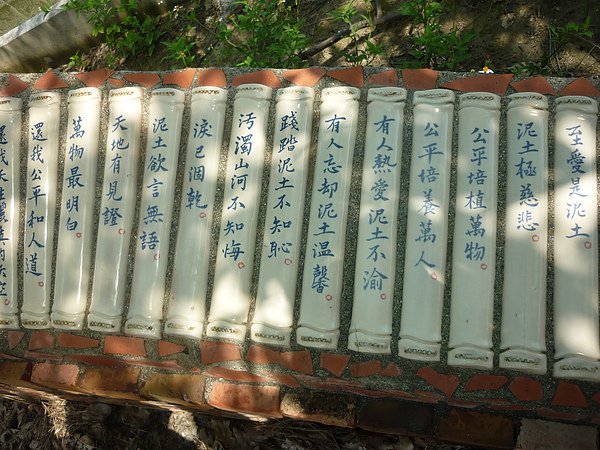 至愛是泥土
泥土極慈悲
公平培植萬物
公平培養萬人
有人熱愛泥土不渝
有人忘却泥土溫馨
踐踏泥土不知恥
汚濁山河不知悔
淚已涸乾
泥土欲言無語
天地有見證
萬物最明白
還我公平和人道